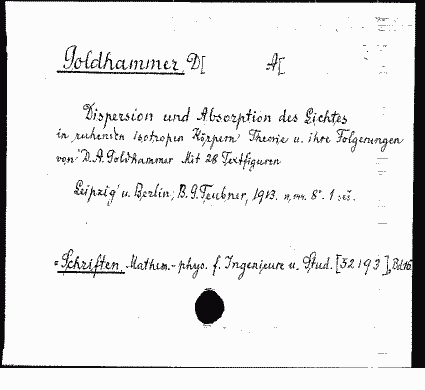 Goldhammer, D[ A[
Dispersion und Absorption des Lichtes
in ruhenden isotropen Körpern Theorie u. ihre Folgerungen
von D. A. Goldhammer Mit 28 Textfiguren
Leipzig u. Berlin; B. G. Teubner, 1913. 8°. 1
= Schriften, Mathem.-phys. f. Ingenieure u. Stud. [52193], Bd.16